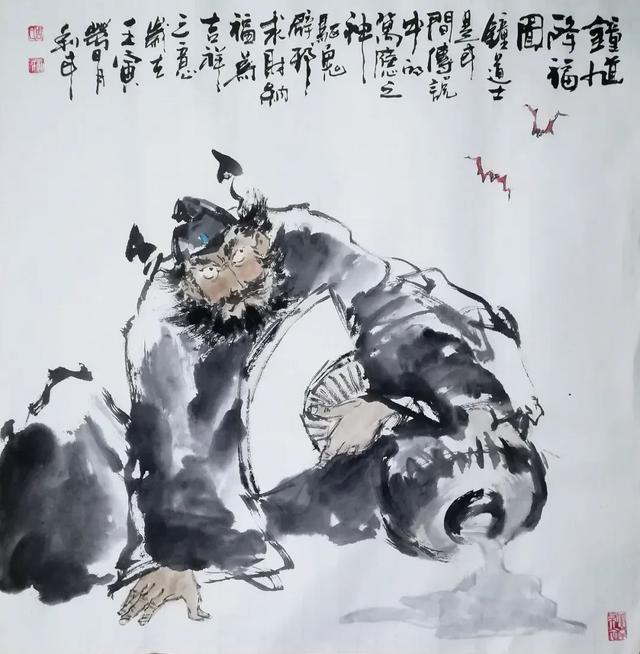 鐘馗
降福
圖
鐘道士
是民
間傳說
中的
萬應之
神
驅鬼
辟邪
求財納
福為
吉祥
之意
歲在
壬寅
月